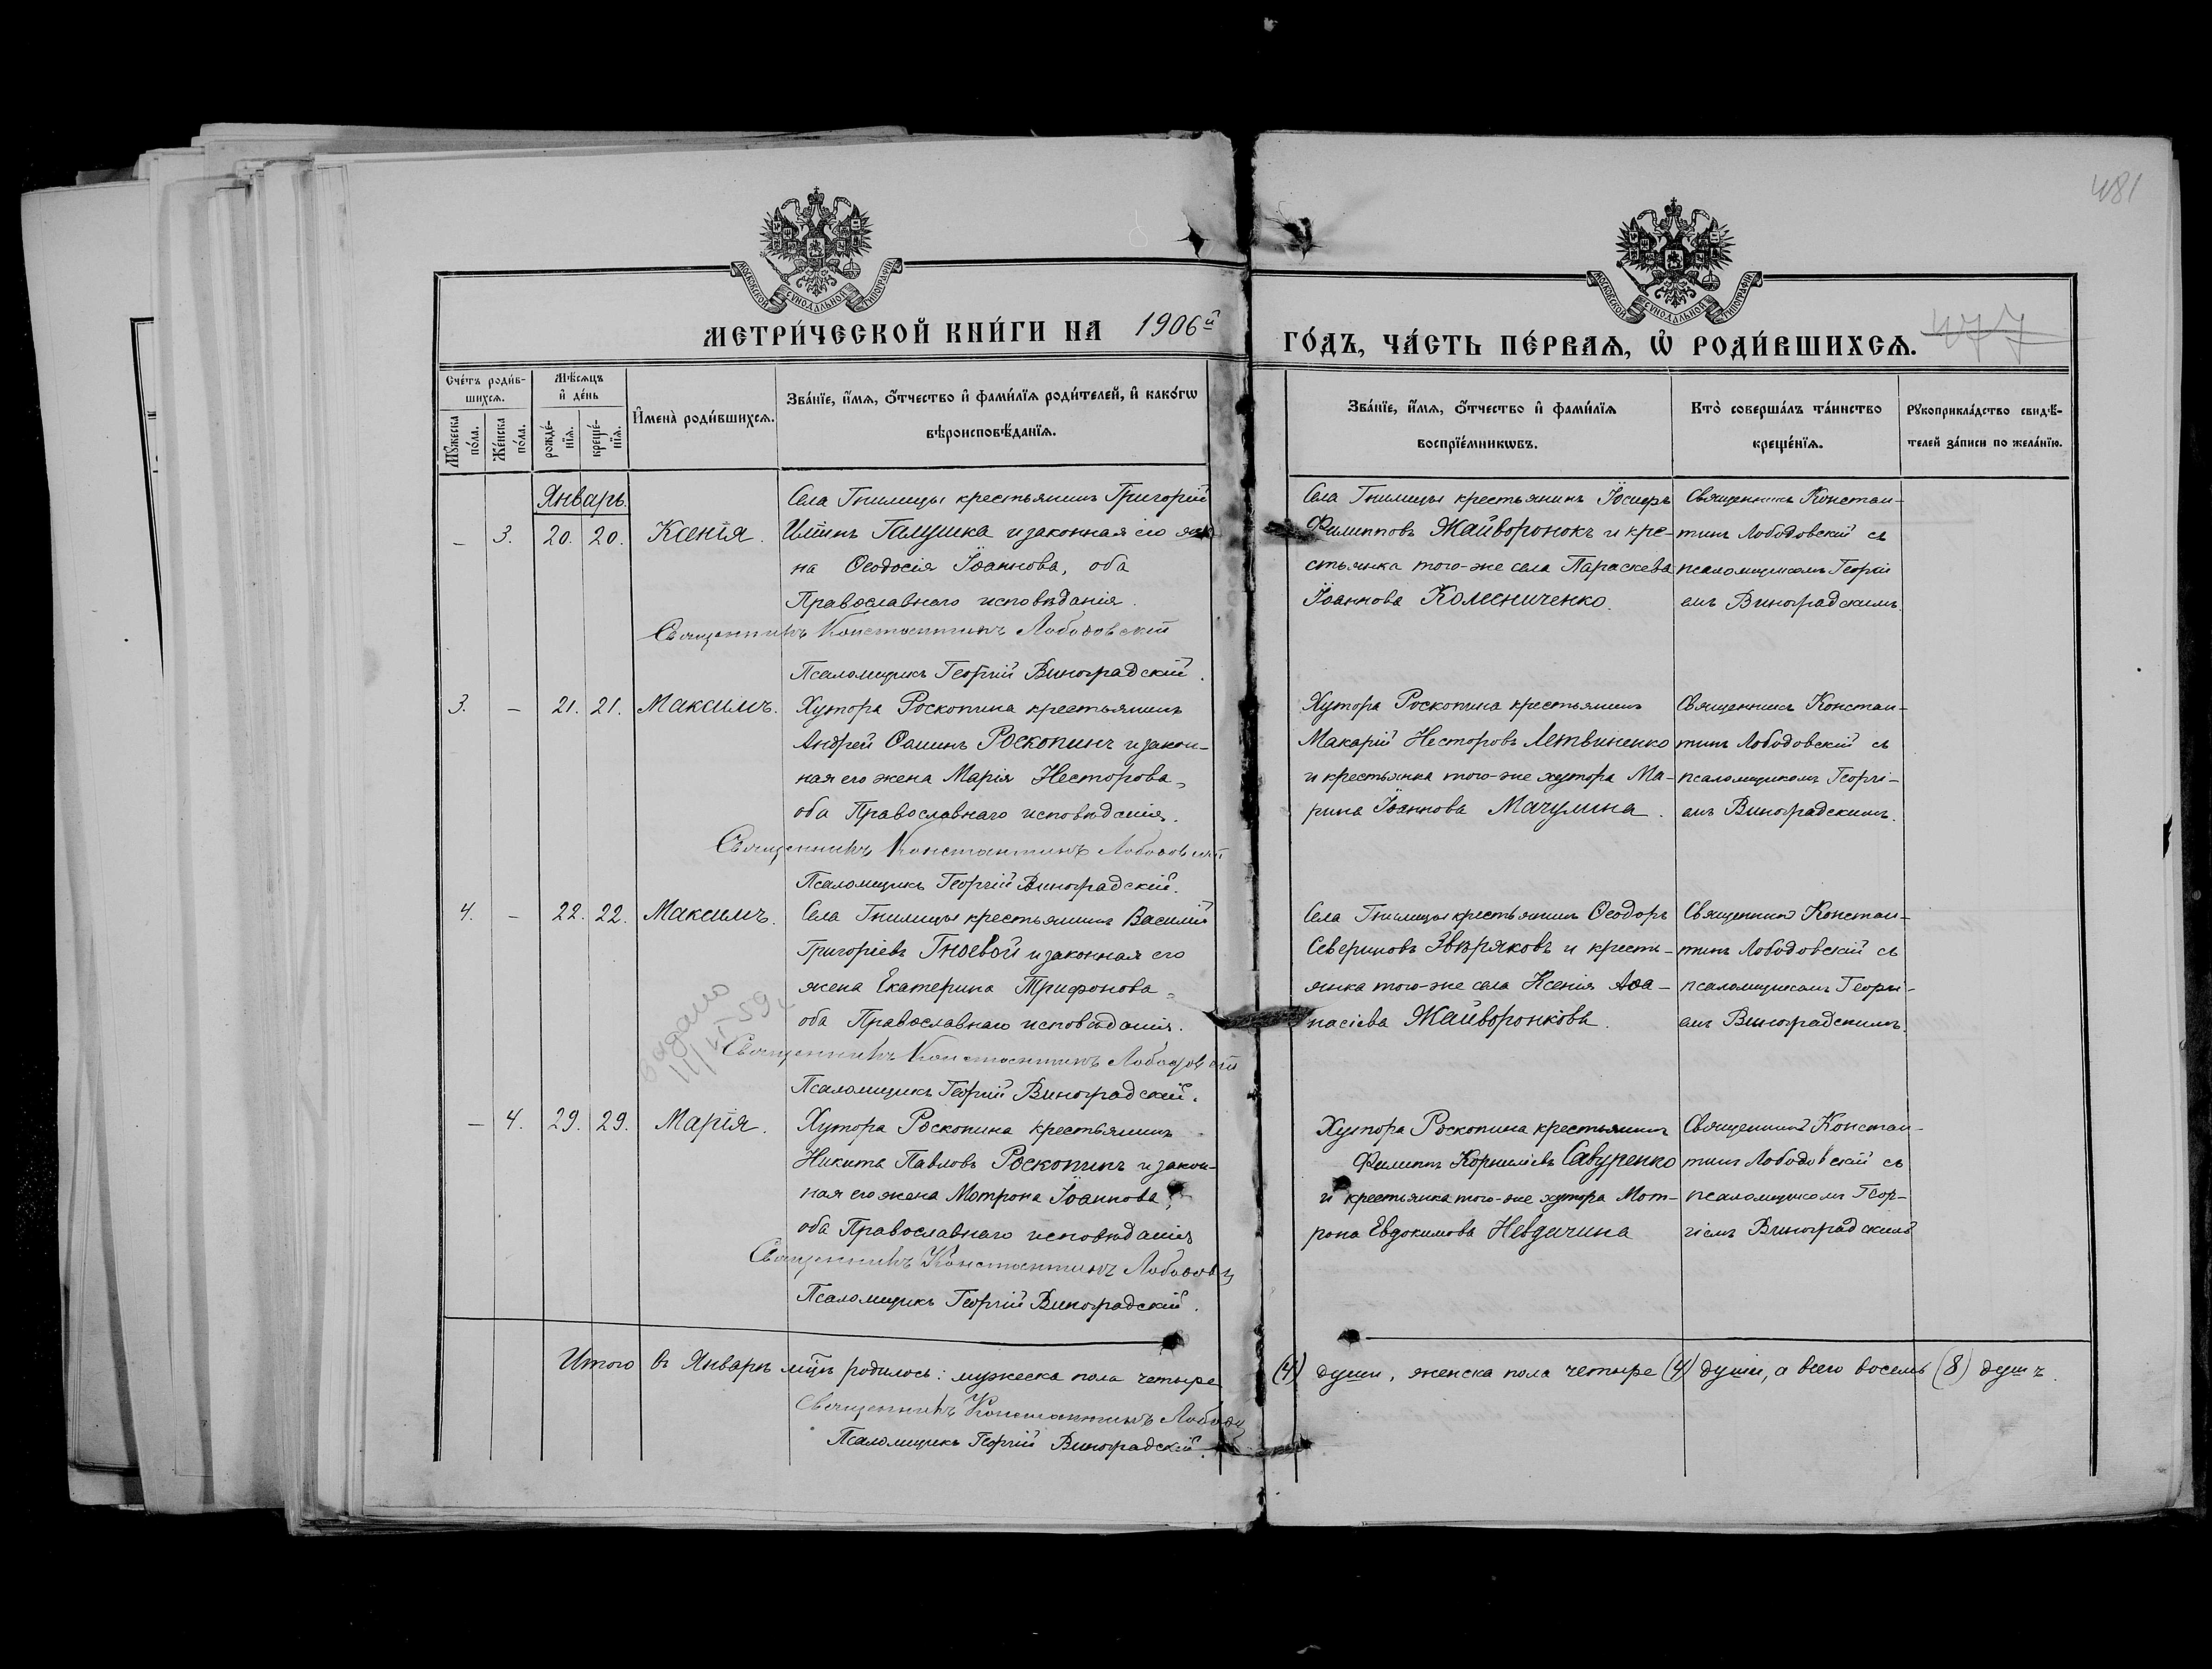 481
МОСКОВСКОЙ СУНОДАЛЬНОЙ ТИПОГРАФІИ
МОСКОВСКОЙ СУНОДАЛЬНОЙ ТИПОГРАФІИ
МЕТРИ́ЧЕСКОЙ КНИ́ГИ НА 1906й
ГО́ДЪ, ЧА́СТЬ ПЕ́РВАѦ, Ѡ҆ РОДИ́ВШИХСѦ.
477
Сче́тъ роди́в-
шихсѧ.
Мꙋ́жеска по́ла.
Же́нска по́ла.
Мѣ́сѧцъ
и҆ де́нь
рожде́-
нїѧ.
креще́-
нїѧ.
И҆мена̀ роди́вшихсѧ.
Зва́нїе, и҆́мѧ, ѻ҆́тчество и҆ фами́лїѧ роди́телей, и҆ како́гѡ
вѣроисповѣ́данїѧ.
Зва́нїе, и҆́мѧ, ѻ҆́тчество и҆ фами́лїѧ
воспрїе́мникѡвъ.
Кто̀ соверша́лъ та́инство
креще́нїѧ.
Рꙋкоприкла́дство свидѣ́-
телей за́писи по жела́нїю.
Январь.
– 3. 20. 20. Ксенія.
Села Гнилицы крестьянинъ Григорій
Галушка и законная его же-
на Ѳеодосія Іоаннова, оба
Православнаго исповѣданія.
Священникъ Константинъ Лободовскій
Псаломщикъ Георгій Виноградскій.
Села Гнилицы крестьянинъ Іосифъ
Филипповъ Жайворонокъ и кре-
стьянка того-же села Параскева
Іоаннова Коленниченко.
Священникъ Констан-
тинъ Лободовскій съ
псаломщикомъ Георгі
емъ Виноградскимъ.
3. – 21. 21. Максимъ.
Хутора Роскопина крестьянинъ
Андрей Ѳоминъ Роскопинъ и закон-
ная его жена Марія Несторова,
оба Православнаго исповѣданія.
Священникъ Константинъ Лободовскій
Псаломщикъ Георгій Виноградскій.
Хутора Роскопина крестьянинъ
Макарій Несторовъ Летвиненко
и крестьянка того-же хутора Ма-
рина Іоаннова Мачулина.
Священникъ Констан-
тинъ Лободовскій съ
псаломщикомъ Георгі-
емъ Виноградскимъ.
4. – 22. 22. Максимъ.
Села Гнилицы крестьянинъ Василій
Григоріевъ Гноевой и законная его
жена Екатерина Трифонова,
оба Православнаго исповѣданія.
Священникъ Константинъ Лободовскій
Псаломщикъ Георгій Виноградскій.
видано
11/VI-59
Села Гнилицы крестьянинъ Ѳеодоръ
Севериновъ Звѣряковъ и кресть-
янка того-же села Ксенія Аѳа-
насіева Жайворонкова.
Священникъ Констан-
тинъ Лободовскій съ
псаломщикомъ Георгі-
емъ Виноградскимъ.
– 4. 29. 29. Марія.
Хутора Роскопина крестьянинъ
Никита Павловъ Роскопинъ и закон-
ная его жена Мотрона Іоаннова,
оба Православнаго исповѣданія
Священникъ Константинъ
Псаломщикъ Георгій Виноградскій.
Хутора Роскопина крестьянинъ
Филиппъ Корниліевъ Савуренко
и крестьянка того-же хутора Мот-
рона Евдокимова Невдачина
Священникъ Констан-
тинъ Лободовскій съ
псаломщикомъ Геор-
гіемъ Виноградскимъ
Итого въ Январѣ мцѣ родилось: мужеска пола четыре (4) души, женска пола четыре (4) души, а всего восемь (8) душъ.
Священникъ Константинъ
Псаломщикъ Георгій Виноградскій.